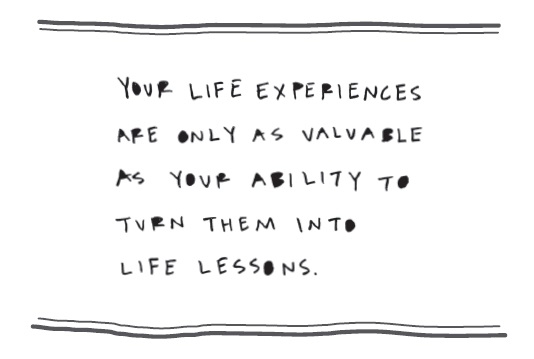 YOUR LIFE EXPERIENCES
ARE ONLY AS VALUABLE
AS YOUR ABILITY TO
TURN THEM INTO
LIFE LESSONS.